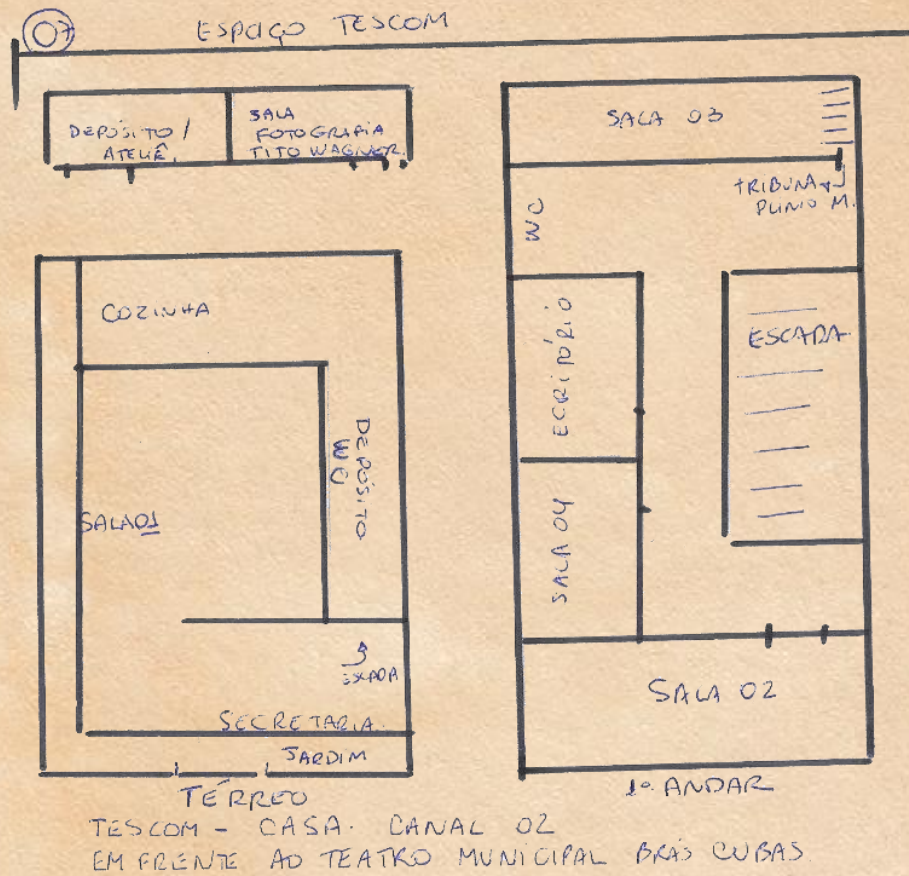 07
ESPAÇO TESCOM
DEPÓSITO /
ATELIÊ.
SALA
FOTOGRAFIA
TITO WAGNER.
COZINHA
DEPÓSITO
WC
SALA 01
ESCADA
SECRETARIA.
JARDIM
TÉRREO
SALA 03
TRIBUNA
PLINIO M.
WC
ECRIPÓRIO
ESCADA
SALA 04
SALA 02
1º ANDAR
TESCOM - CASA. CANAL 02
EM FRENTE AO TEATRO MUNICIPAL BRÁS CUBAS